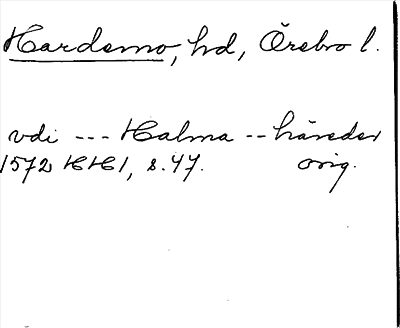 Hardemo, hd, Örebro l.
vdi --- Halma -- häreder
1572 HH1, s. 47. orig.